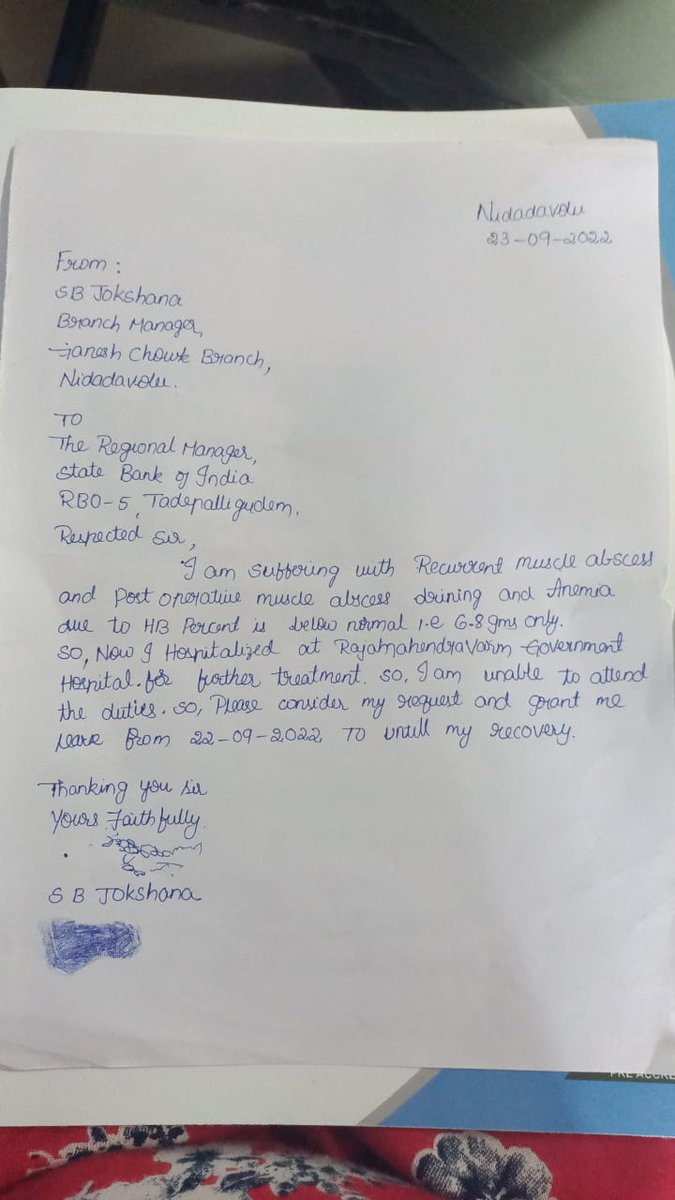 Nidadavolu
23-09-2022
From:
SB Jokshana
Branch Manager,
Ganesh Chowk Branch,
Nidadavolu.
TO
The Regional Manager,
State Bank of India
RBO-5, Tadepalligudem.
Respected Sir,
I am suffering with Recurrent muscle abscess
and Post operative muscle abscess drining and Anemia
due to HB Percent is below normal i.e 6.8 gms only.
So, Now I Hospitalized at RajahMahendraVarm Government
Hospital. for further treatment. so, I am unable to attend
the duties. so, Please consider my request and grant me
leave from 22-09-2022 TO untill my recovery.
Thanking you sir
Yours Faithfully.
S B JOKshana
PRE ACCRE